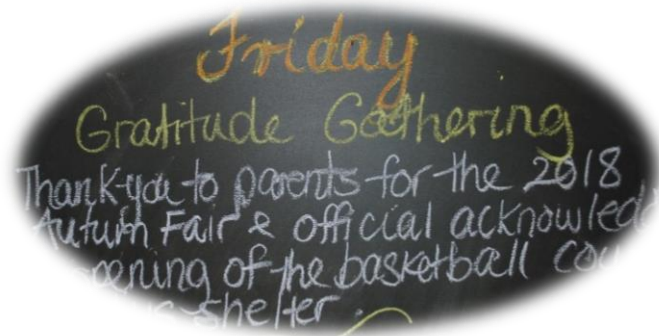 Friday
Gratitude Gathering
Thank-you to parents for the 2018
Autumn Fair & official
of the basketball
shelter.